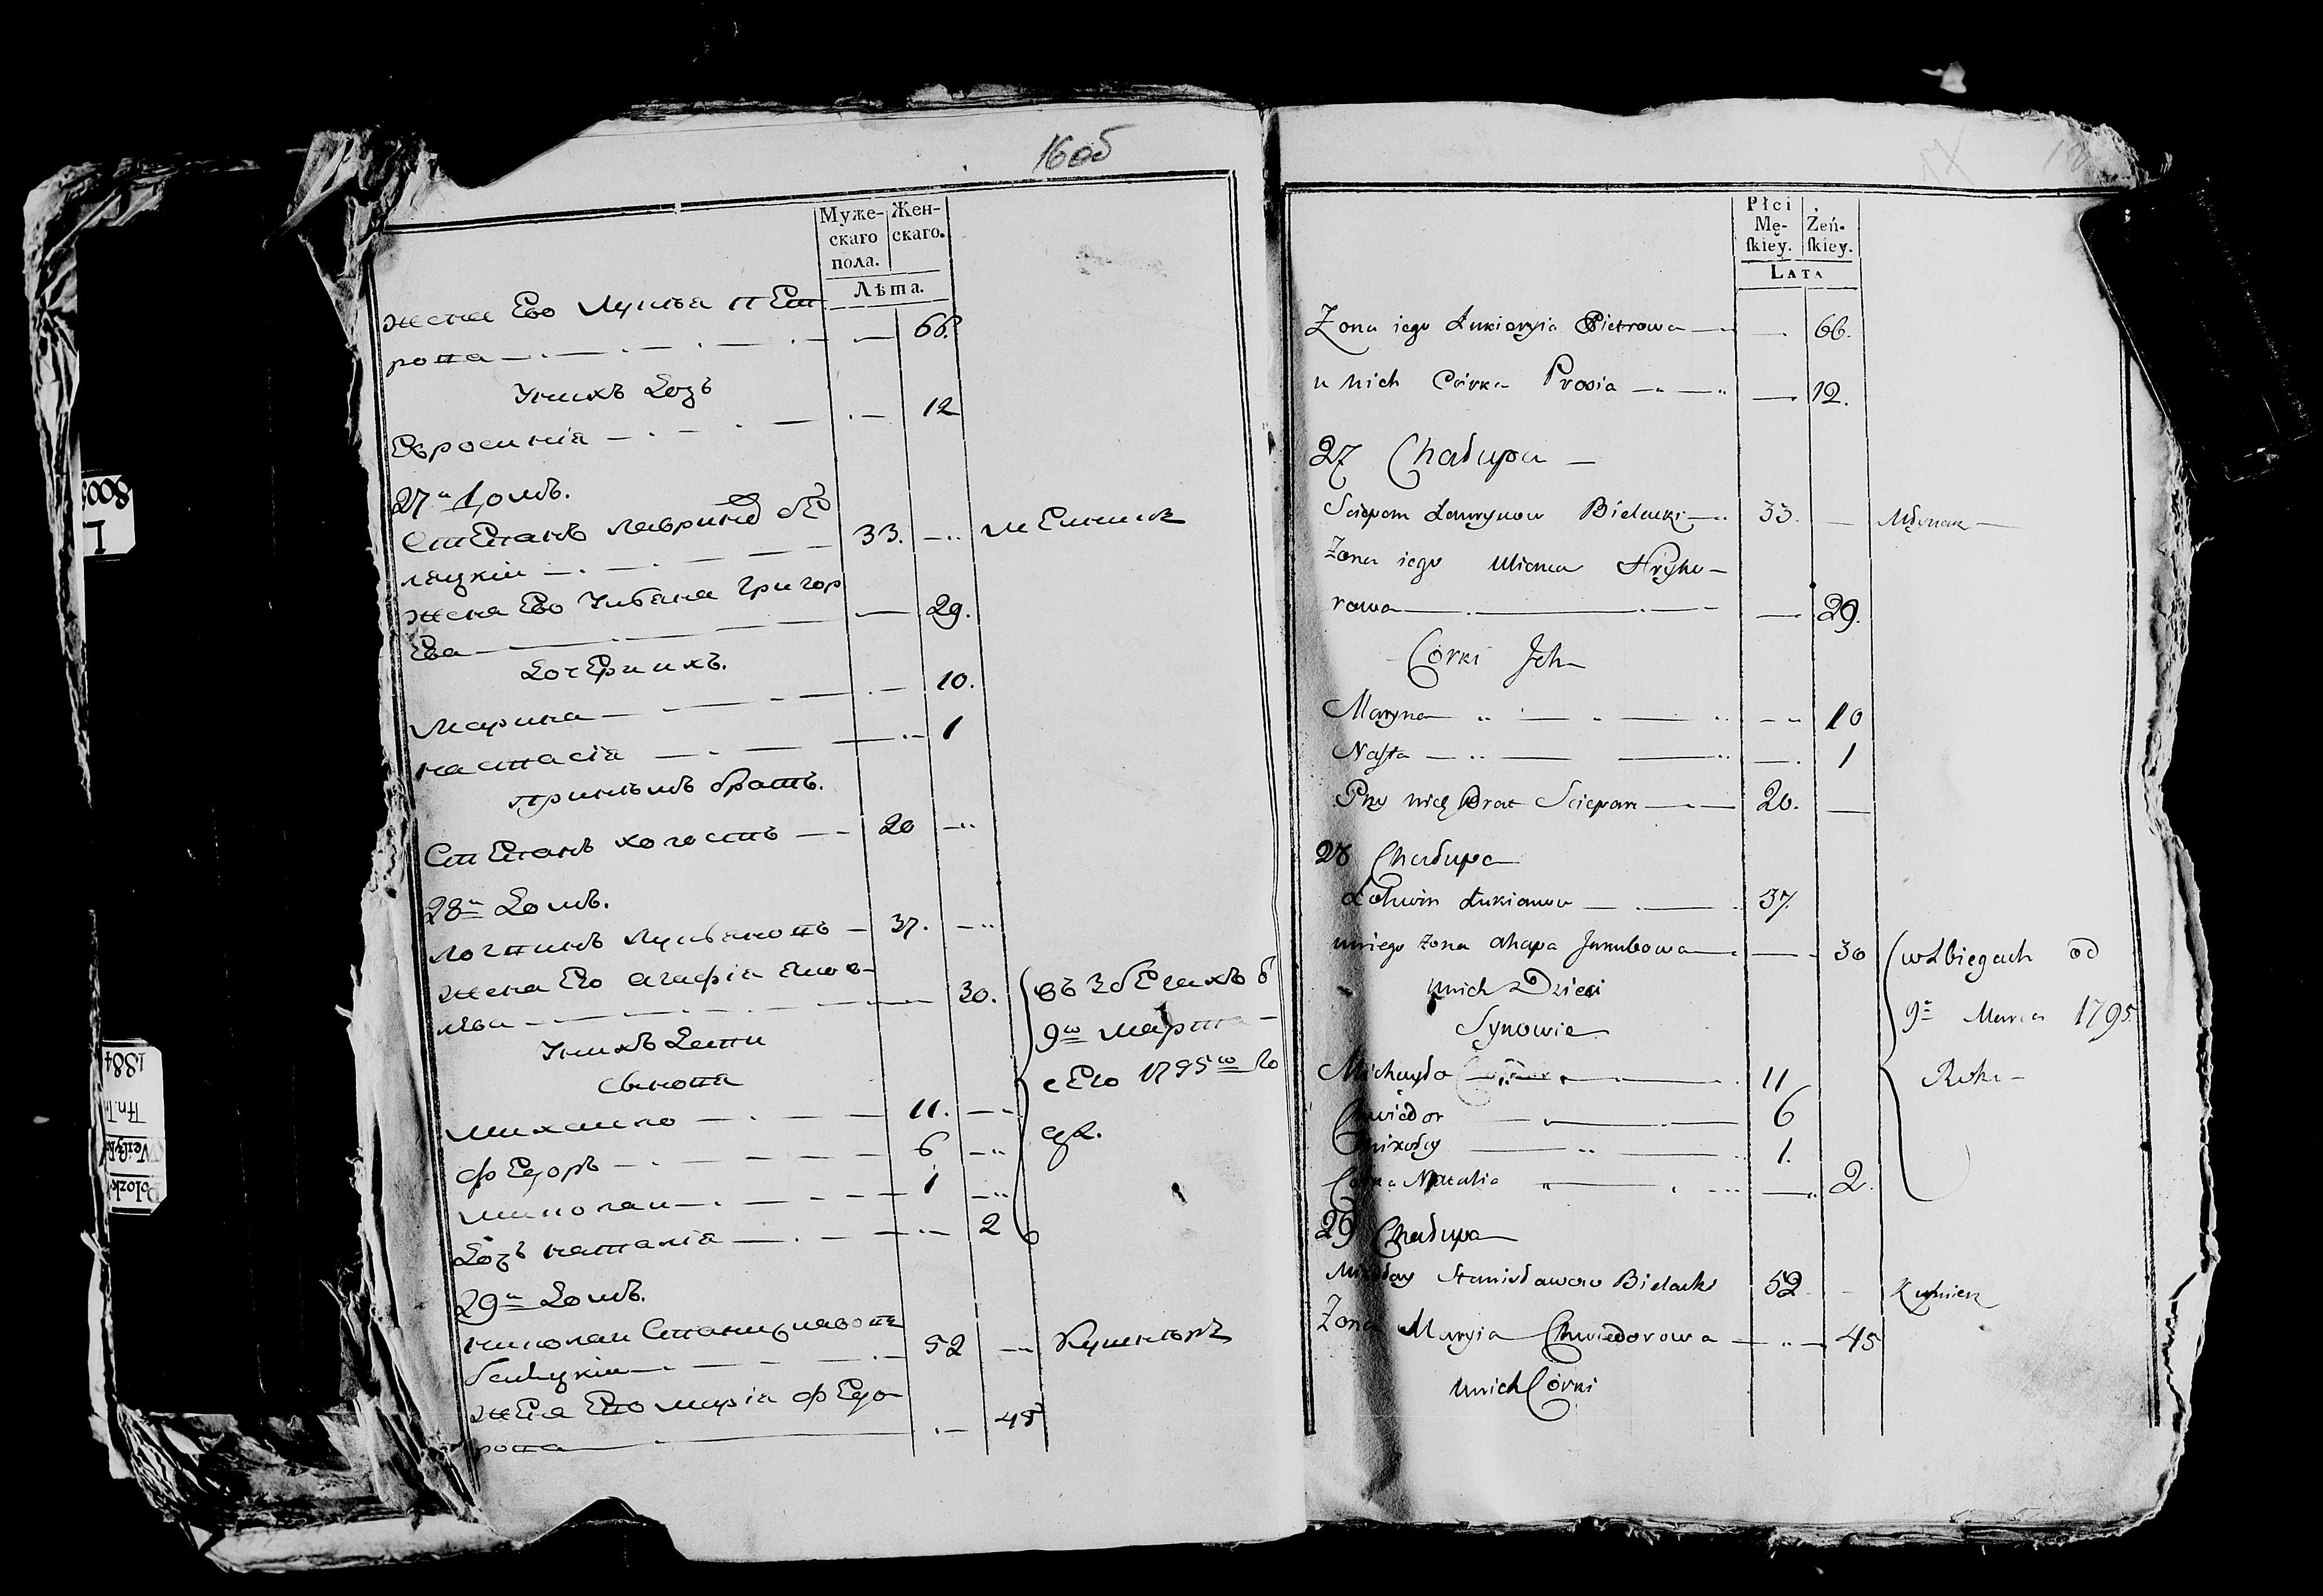 16 об
Муже-
скаго
пола.
Жен-
скаго.
Лѣта.
жена Его Лукѣа пЕт
рова 66.
Унихъ Дочь
Евросинія 12
27й Домъ.
СтЕпанъ лаврино бЕ
ляцкіи 33. мЕлник
жена Его Улбяна григор
Ева 29.
ДочЕри ихъ.
Марина 10.
настасія 1
принѣмъ братъ.
СтЕпанъ холостъ 20
28й Домъ.
логвинъ лукьяновъ 37.
Жена Его агафія яков-
лЕва 30.
въ збЕгахъ б
9го марта
сЕго 1795го го
да.
Унихъ Дети
Сыновя
михаило 11.
фЕдоръ 6
миколаи 1
Дочь наталія 2
29й Домъ.
николаи Станиславовъ
белѣцкіи 52 Кушнѣръ
жЕна Его марія фЕдо
рова 45
Płci
Mę-
ſkiey.
Żeń-
ſkiey.
LATA
Zona iego Łukieryia Pietrowa 66.
u nich Córka Prosia 12.
27 Chałupa
Sciepan Ławrynow Bielacki 33. Młynar
Zona iego Uliana Hryho-
rowa 29.
Córki Jch
Maryna 10
Naſta 1
Przy nich Brat Sciepan 20.
28 Chałupa
Łohwin Łukianow 37.
uniego Zona Ahapa Jakubowa 30
w Zbiegach od
9o Marca 1795
Roku
unich Dzieci
Synowie
Michayło 11
Chwiedor 6
Mikołay 1.
Corka Natalia 2.
29 Chałupa
Mikołay Stanisławow Bielacki 52 Kuśnierz
Zona Maryia Chwiedorowa 45
unich Córki
8003
1884
Polozk